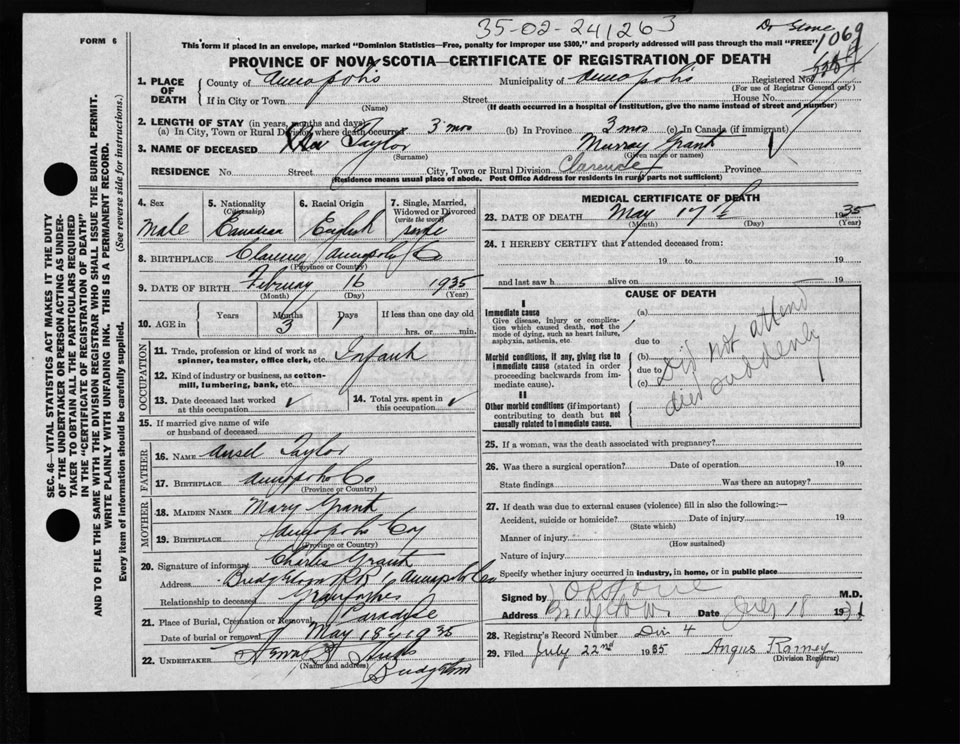 35-02-241263
Dr Stone
1069
FORM 6
This form if placed in an envelope, marked "Dominion Statistics—Free, penalty for improper use $300," and properly addressed will pass through the mail "FREE"
PROVINCE OF NOVA SCOTIA—CERTIFICATE OF REGISTRATION OF DEATH
1. PLACE OF DEATH
County of Annapolis Municipality of Annapolis Registered No.
(For use of Registrar General only)
If in City or Town Street House No.
(Name) (If death occurred in a hospital of institution, give the name instead of street and number)
2. LENGTH OF STAY (in years, months and days)
(a) In City, Town or Rural Division where death occurred 3 mos (b) In Province 3 mos (c) In Canada (if immigrant)
3. NAME OF DECEASED Taylor Murray Grant
(Surname) (Given name or names)
RESIDENCE No. Street City, Town or Rural Division Clarence Province
(Residence means usual place of abode. Post Office Address for residents in rural parts not sufficient)
4. Sex 5. Nationality (Citizenship) 6. Racial Origin 7. Single, Married, Widowed or Divorced (write the word)
Male Canadian English single
8. BIRTHPLACE Clarence Annapolis Co
(Province or Country)
9. DATE OF BIRTH February 16 1935
(Month) (Day) (Year)
10. AGE in Years Months Days If less than one day old
3 1 hrs. or min.
OCCUPATION
11. Trade, profession or kind of work as spinner, teamster, office clerk, etc. Infant
12. Kind of industry or business, as cotton-mill, lumbering, bank, etc.
13. Date deceased last worked at this occupation ✓ 14. Total yrs. spent in this occupation ✓
15. If married give name of wife or husband of deceased
FATHER
16. Name Ansel Taylor
17. Birthplace Annapolis Co
(Province or Country)
MOTHER
18. Maiden Name Mary Grant
19. Birthplace Annapolis Coy
(Province or Country)
20. Signature of informant Charles Grant
Address Bridgetown RR Annapolis Co
Relationship to deceased Grandfather
21. Place of Burial, Cremation or Removal Paradise
Date of burial or removal May 18th 1935
22. UNDERTAKER
(Name and address) Bridgetown
MEDICAL CERTIFICATE OF DEATH
23. DATE OF DEATH May 17th 1935
(Month) (Day) (Year)
24. I HEREBY CERTIFY that I attended deceased from:
19 to 19
and last saw h alive on 19
CAUSE OF DEATH
I
Immediate cause
Give disease, injury or complication which caused death, not the mode of dying, such as heart failure, asphyxia, asthenia, etc.
(a)
due to
Morbid conditions, if any, giving rise to immediate cause (stated in order proceeding backwards from immediate cause).
(b)
due to
(c)
Did not attend
died suddenly
II
Other morbid conditions (if important) contributing to death but not causally related to immediate cause.
25. If a woman, was the death associated with pregnancy?
26. Was there a surgical operation? Date of operation 19
State findings Was there an autopsy?
27. If death was due to external causes (violence) fill in also the following:—
Accident, suicide or homicide? Date of injury 19
(State which)
Manner of injury
(How sustained)
Nature of injury
Specify whether injury occurred in industry, in home, or in public place
Signed by Stone M.D.
Address Bridgetown Date July 18 19
28. Registrar's Record Number Div 4
29. Filed July 22nd 1935 Angus Ramey
(Division Registrar)
SEC. 46—VITAL STATISTICS ACT MAKES IT THE DUTY
OF THE UNDERTAKER OR PERSON ACTING AS UNDER-
TAKER TO OBTAIN ALL THE PARTICULARS REQUIRED
IN THE "CERTIFICATE OF REGISTRATION OF DEATH"
AND TO FILE THE SAME WITH THE DIVISION REGISTRAR WHO SHALL ISSUE THE BURIAL PERMIT.
WRITE PLAINLY WITH UNFADING INK. THIS IS A PERMANENT RECORD.
Every item of information should be carefully supplied. (See reverse side for instructions.)